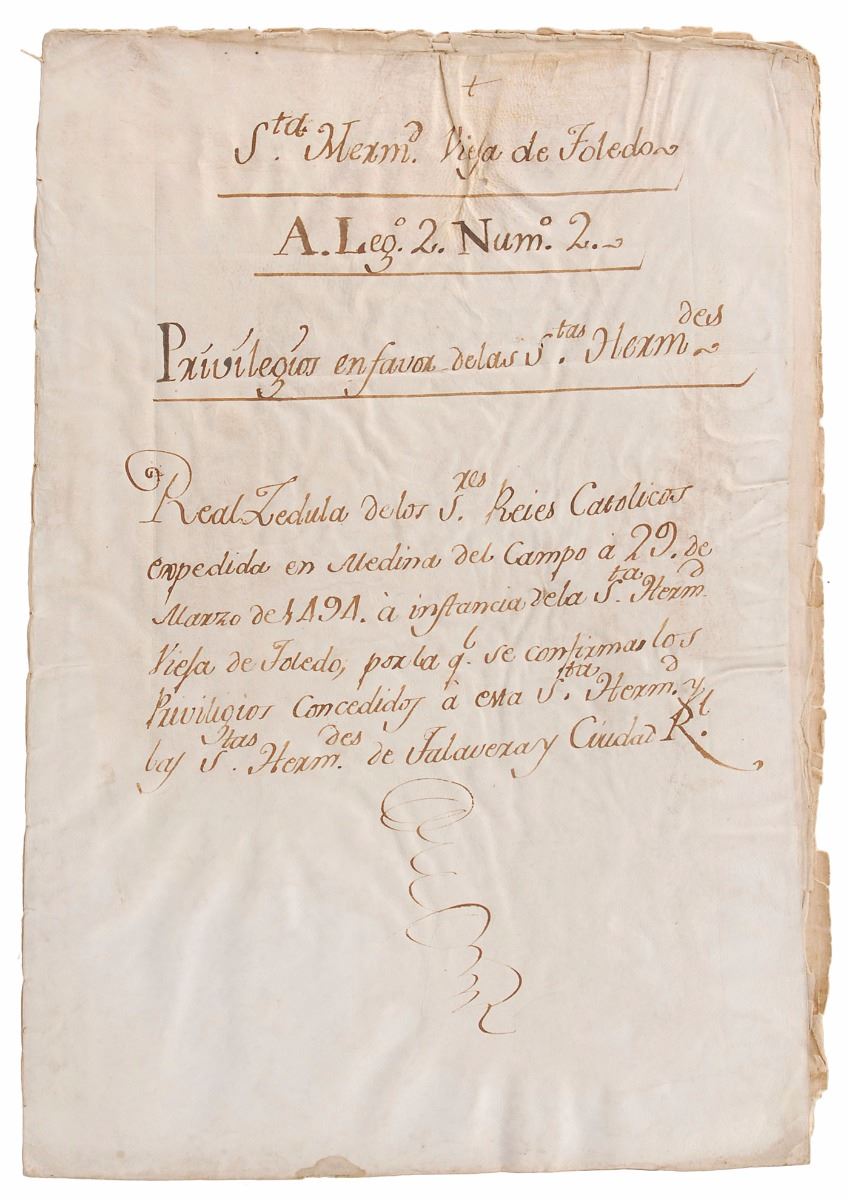 +
S.ta Herm.d Viefa de Toledo
A. Leg.o 2. Num.o 2.
Privilegios en favor delas S.tas Herm.des
Real Zedula de los S.res Reies Catolicos
expedida en Medina del Campo à 29. de
Marzo de 1494. à instancia dela S.ta Herm.d
Viefa de Toledo, por la q.l se confirman los
Priviligios Concedidos à esta S.ta Herm.d y
las S.tas Herm.des de Talavera y Ciudad R.l